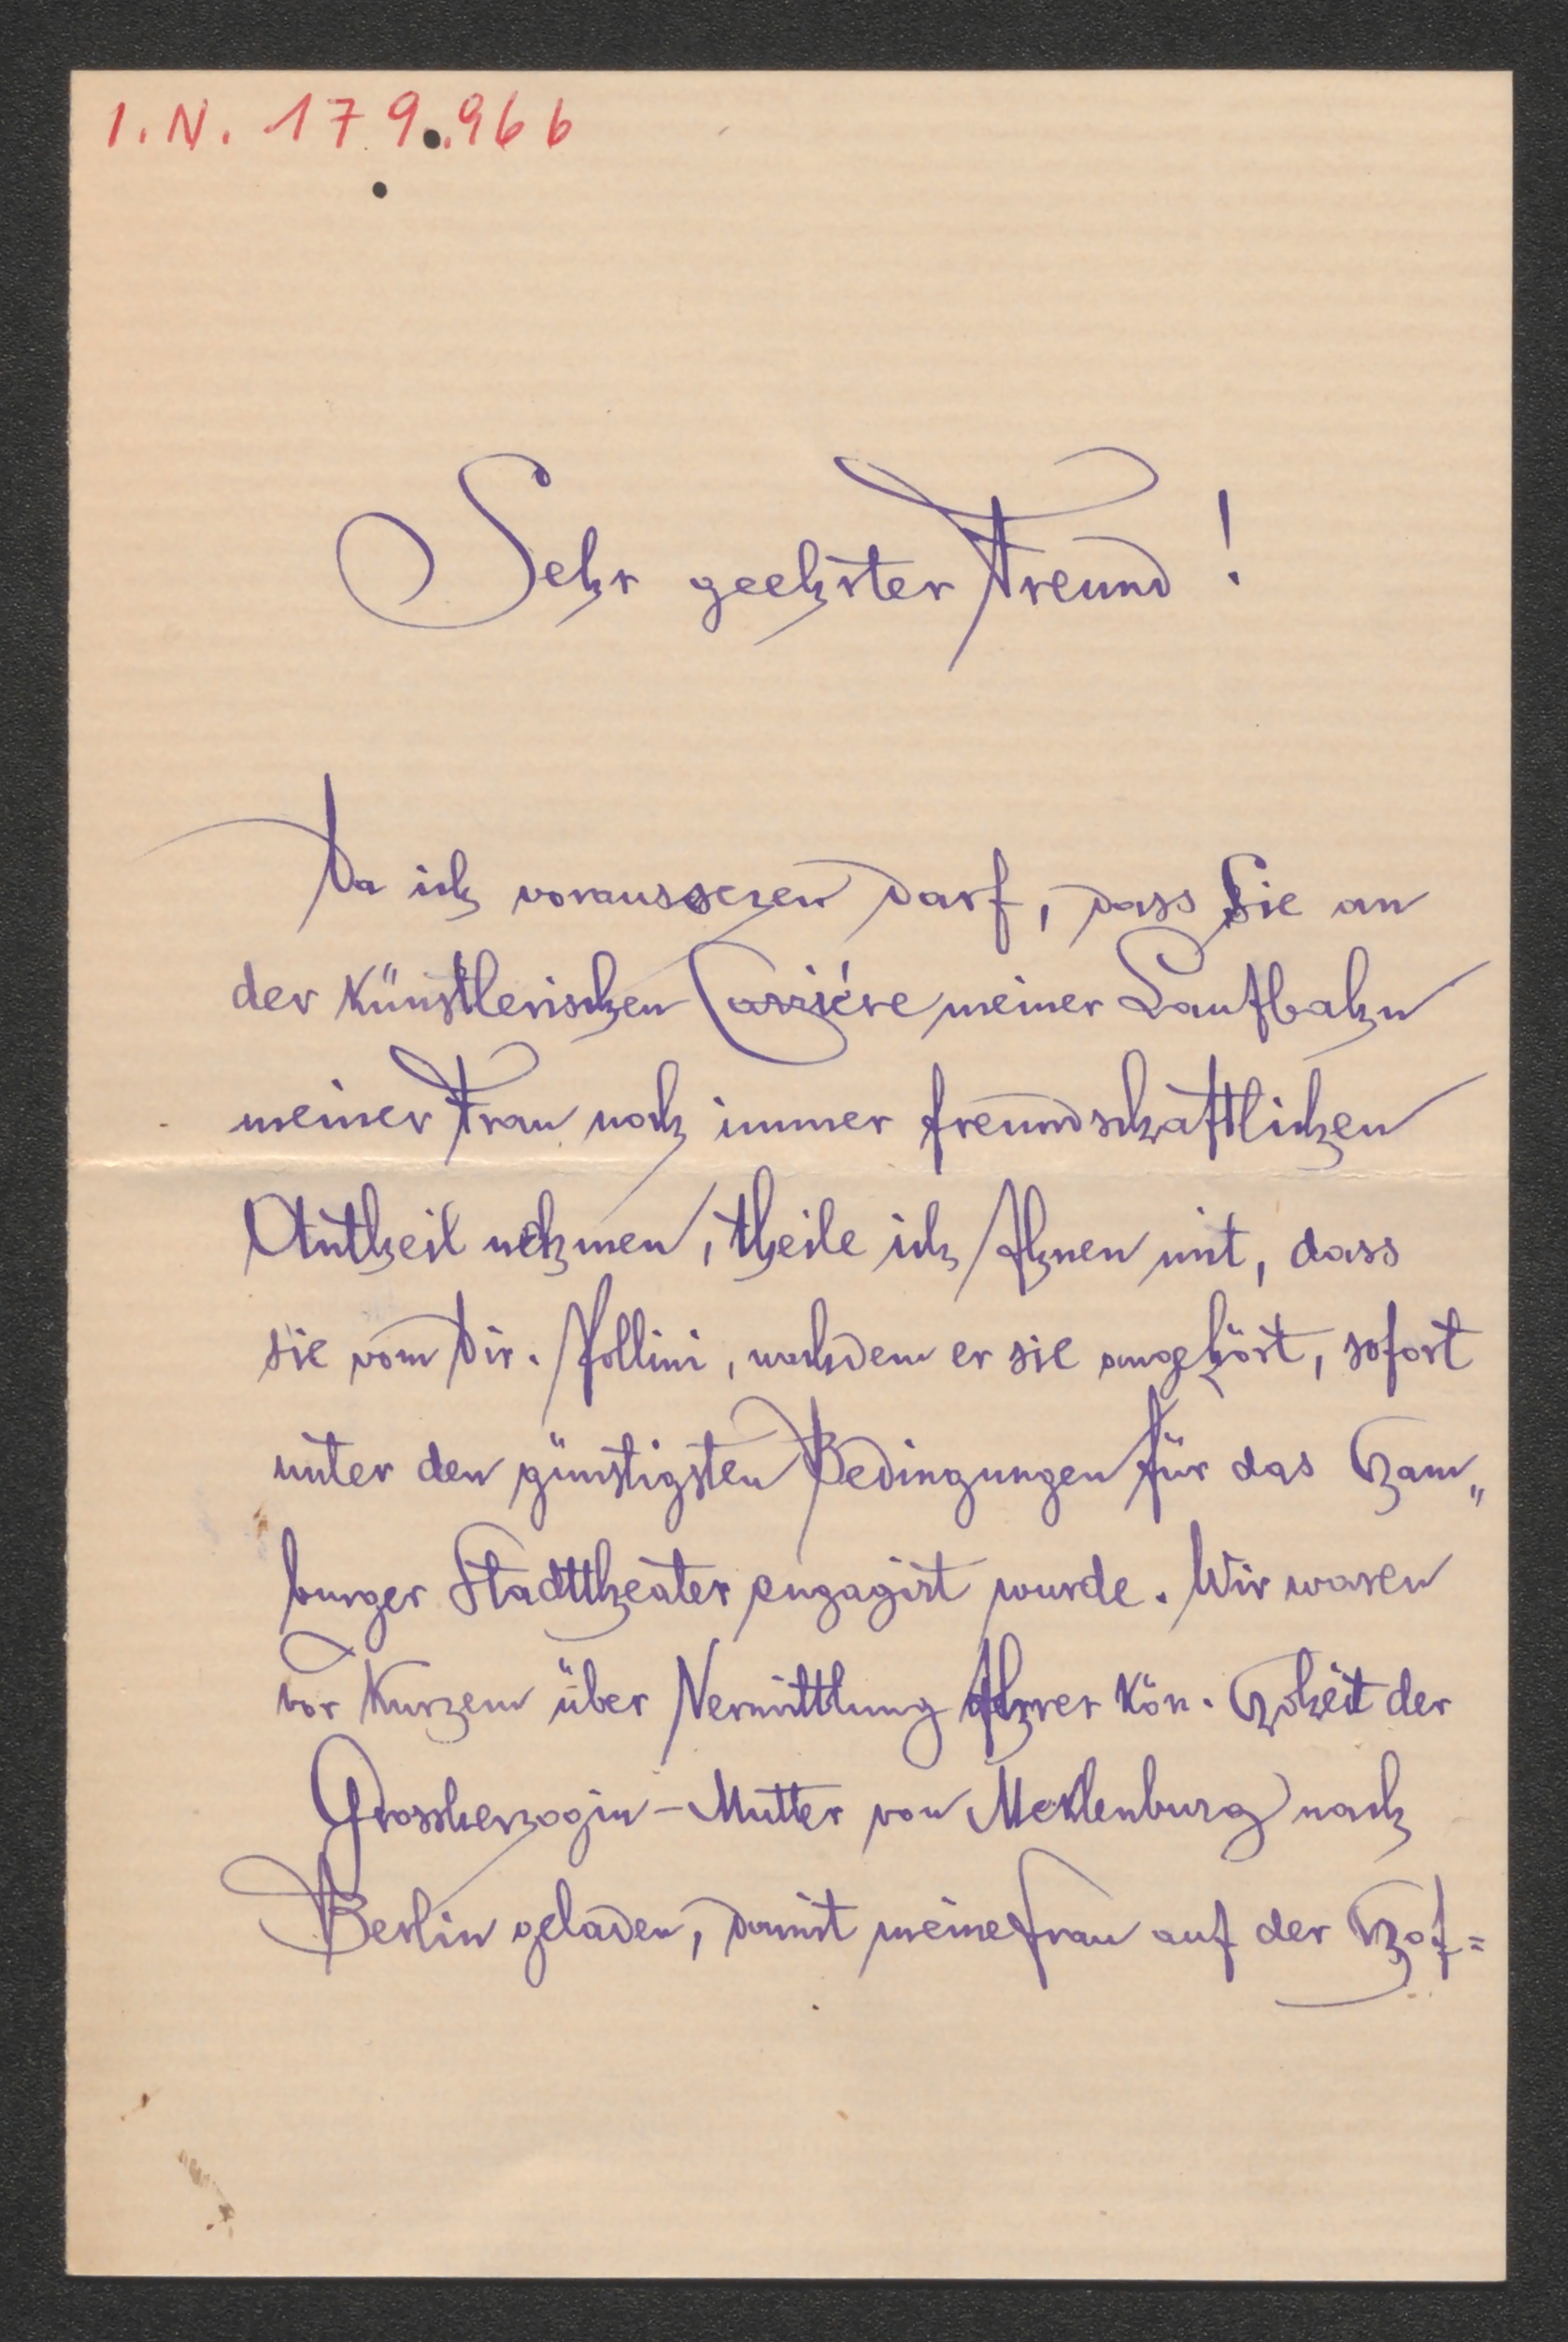 I.N. 179.966
Sehr geehrter Freund!
Da ich voraussezen darf, dass Sie an
der künstlerischen Carriére meiner Laufbahn
meiner Frau noch immer freundschaftlichen
Antheil nehmen, theile ich Ihnen mit, dass
sie vom Dir. Pollini, nachdem er sie angehört, sofort
unter den günstigsten Bedingungen für das Ham„
burger Stadttheater engagirt wurde. Wir waren
vor Kurzem über Vermittlung Ihrer kön. Hoheit der
Grossherzogin-Mutter von Meklenburg nach
Berlin geladen, damit meine Frau auf der Hof=